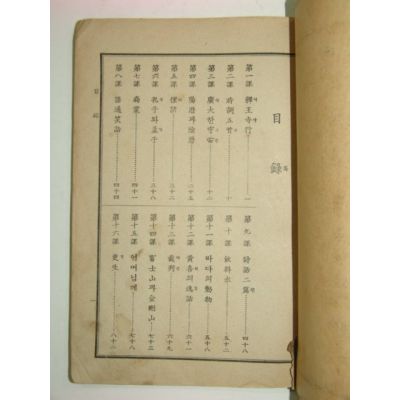 目錄
第一課 釋王寺行 一
第二課 時調五首 十
第三課 廣大한宇宙 十二
第四課 陽曆과陰曆 二十
第五課 二十五
第六課 孔子와孟子 三十八
第七課 四十一
第八課 笑話 四十四
第九課 詩話二篇 四十八
第十課 飮料水 五十二
第十一課 바다의動物 五十八
第十二課 黃喜의逸話 六十一
第十三課 裁判 六十九
第十四課 富士山과金剛山 七十三
第十五課 어머님께 七十八
第十六課 更生 八十二
目錄
一